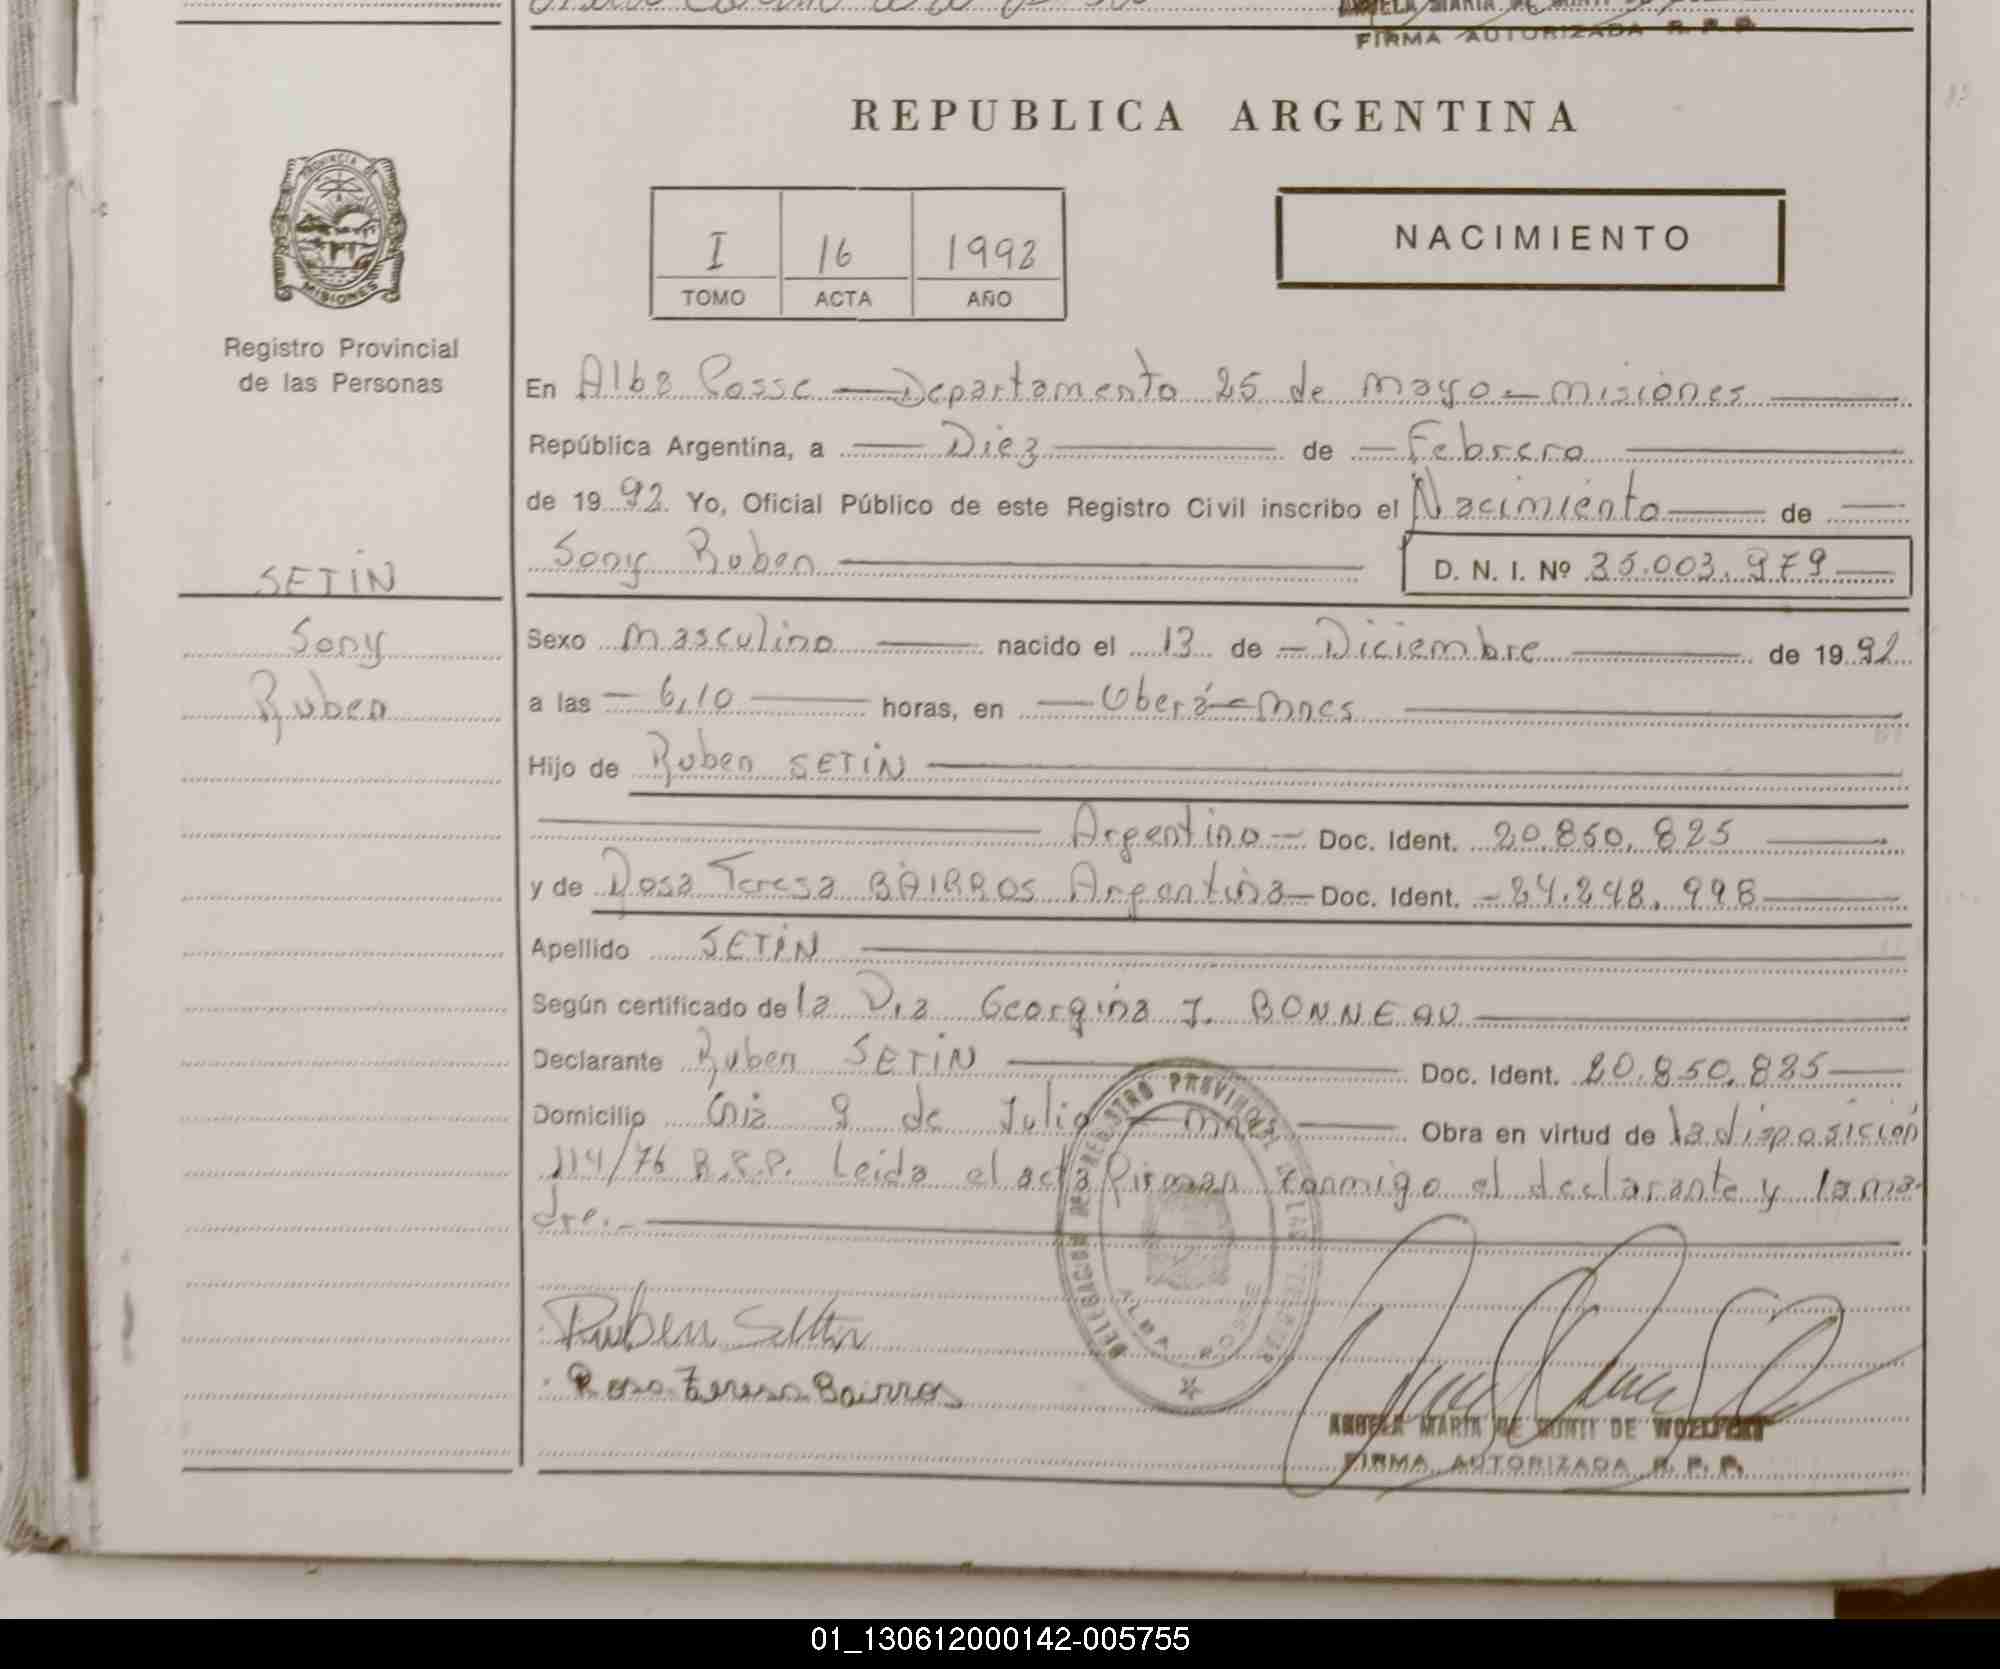 ANGELA MARIA DE
FIRMA AUTORIZADA R. P. P.
REPUBLICA ARGENTINA
PROVINCIA DE
MISIONES
Registro Provincial
de las Personas
I 16 1992
TOMO ACTA AÑO
NACIMIENTO
En Alba Posse — Departamento 25 de mayo — misiones
República Argentina, a — Diez — de — Febrero
de 1992. Yo, Oficial Público de este Registro Civil inscribo el Nacimiento — de
Sony Ruben — D. N. I. Nº 35.003.979
SETIN
Sony
Ruben
Sexo masculino — nacido el 13 de — Diciembre — de 1992
a las — 6,10 — horas, en — Oberá — Mnes
Hijo de Ruben SETIN
Argentino — Doc. Ident. 20.850.825
y de Rosa Teresa BAIRROS Argentina — Doc. Ident. — 24.248.998
Apellido SETIN
Según certificado de la Dra Georgina J. BONNEAU
Declarante Ruben SETIN — Doc. Ident. 20.850.825
Domicilio 9 de Julio — mnes — Obra en virtud de la disposición
114/76 R.P.P. Leida el acta firman conmigo el declarante y la ma-
dre.-
DELEGACION DE REGISTRO PROVINCIAL DE LAS PERSONAS
ALBA POSSE
Ruben Settin
Rosa Teresa Bairros
ANGELA MARIA DE MUNTI DE WOELFERT
FIRMA AUTORIZADA R. P. P.
01_130612000142-005755